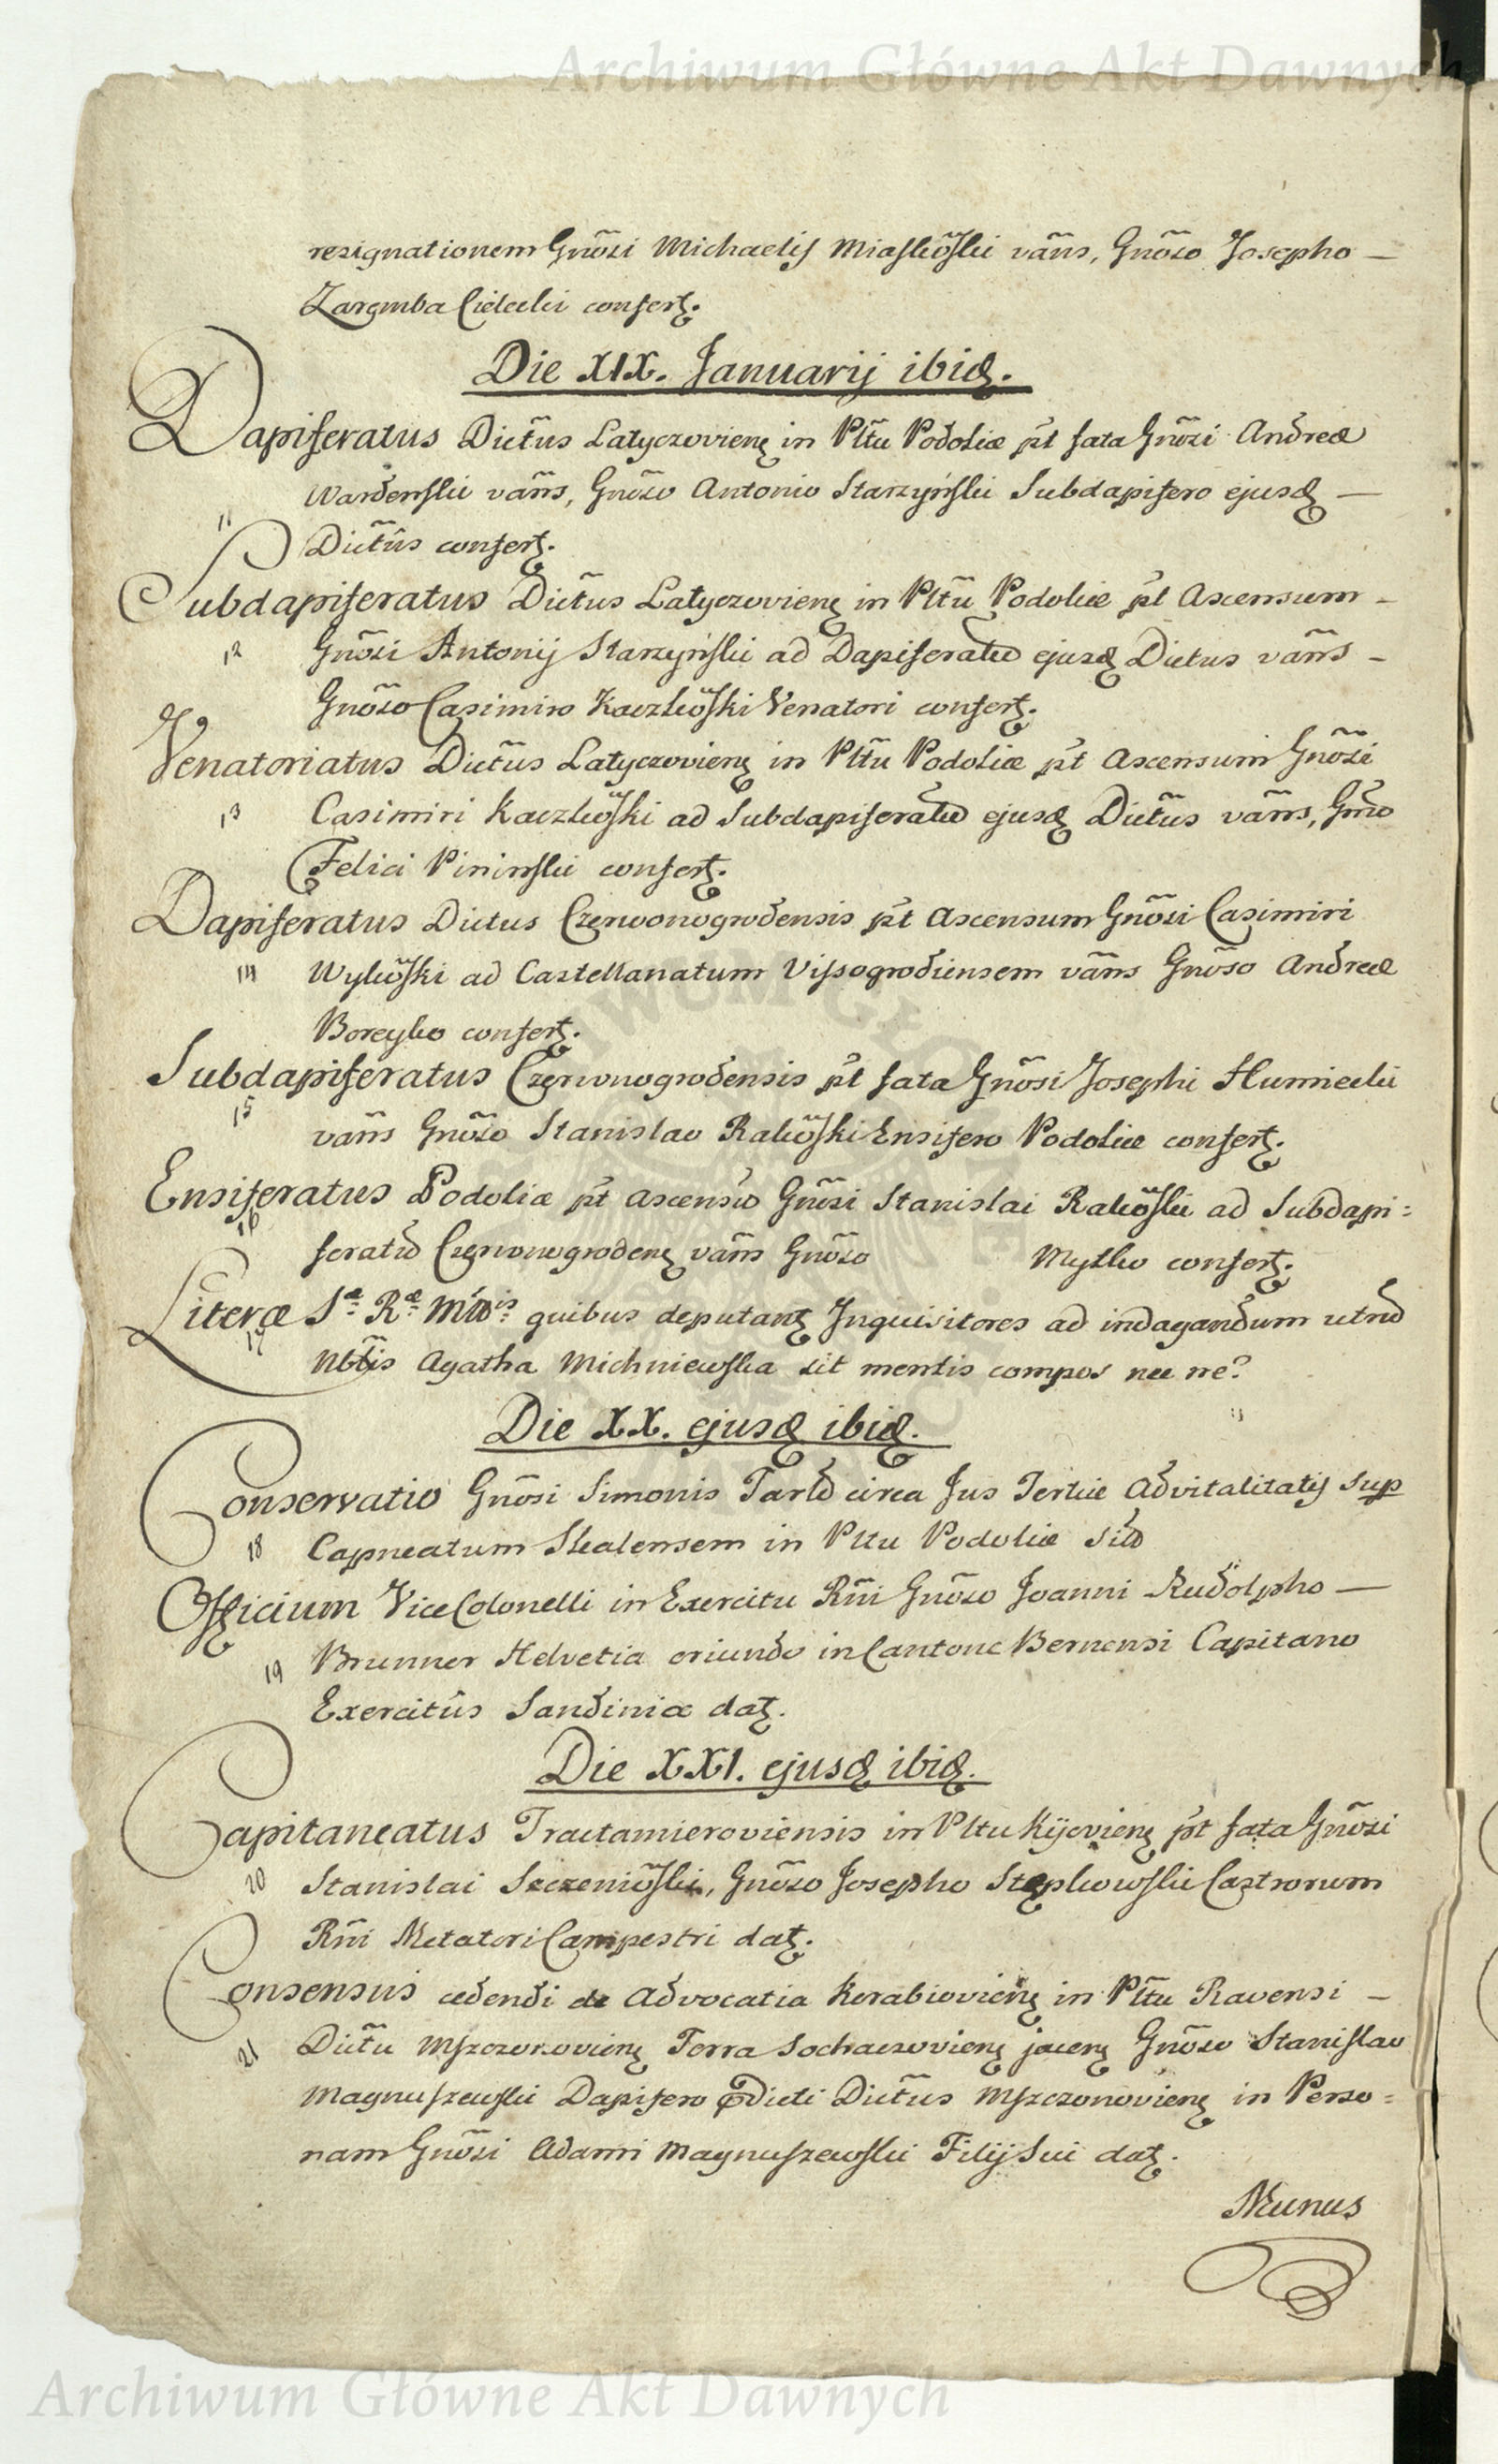 Archiwum Główne Akt Dawnych
resignationem Gnosi Michaelis Miaskoskii vans, Gnoso Josepho —
Zaremba Cielecki confert.
Die XIX. Januarij ibid.
Dapiferatus Dictus Latyczovien in Pltu Podoliæ pt fata Gnosi Andreæ
Wardenskii vans, Gnoso Antonio Starzyńskii Subdapifero ejusd —
11
Dictus confert.
Subdapiferatus Dictus Latyczovien in Pltu Podoliæ pt Ascensum –
12 Gnosi Antonij Starzyńskii ad Dapiferatu ejusd Dictus vans –
Gnoso Casimiro Kaczkoski Venatori confert.
Venatoriatus Dictus Latyczovien in Pltu Podoliæ pt Ascensum Gnosi
13 Casimiri Kaczkoski ad Subdapiferatu ejusd Dictus vans, Gnso
Felici Pininskii confert.
Dapiferatus Dictus Czerwonogrodensis pt Ascensum Gnosi Casimiri
14 Wykoski ad Castellanatum Vissogrodiensem vans Gnoso Andreæ
Boreyko confert.
Subdapiferatus Czerwonogrodensis pt fata Gnosi Josephi Humieckii
15 vans Gnoso Stanislao Rakoski Ensifero Podoliæ confert.
Ensiferatus Podoliæ pt ascensu Gnosi Stanislai Rakoskii ad Subdapi=
16 feratu Czerwonogroden vans Gnoso Mytko confert.
Literæ Sæ Ræ Mttis quibus deputant Inquisitores ad indagandum utru
17 Nbtis Agatha Michniewska sit mentis compos nec ne?
Die XX. ejusd ibid.
Conservatio Gnosi Simonis Tarło circa Jus Tertiæ Advitalitatis sup
18 Capneatum Skalensem in Pltu Podoliæ Situ
Officium ViceColonelli in Exercitu Rni Gnoso Joanni Rudolpho —
19 Brunner Helvetia oriundo in Cantone Bernensi Capitano
Exercitûs Sardiniæ dat.
Die XXI. ejusd ibid.
Capitaneatus Tractamieroviensis in Pltu Kijovien pt fata Gnosi
20 Stanislai Szczenioskii, Gnoso Josepho Stępkowskii Castrorum
Rni Metatori Campestri dat.
Consensus cedendi de Advocatia Korabiovien in Pltu Ravensi –
21 Dictu Mszczonovien Terra Sochaczovien jacen Gnoso Stanislao
Magnuszewskii Dapifero Pdicti Dictus Mszczonovien in Perso=
nam Gnosi Adami Magnuszewskii Filij Sui dat.
Munus
Archiwum Główne Akt Dawnych